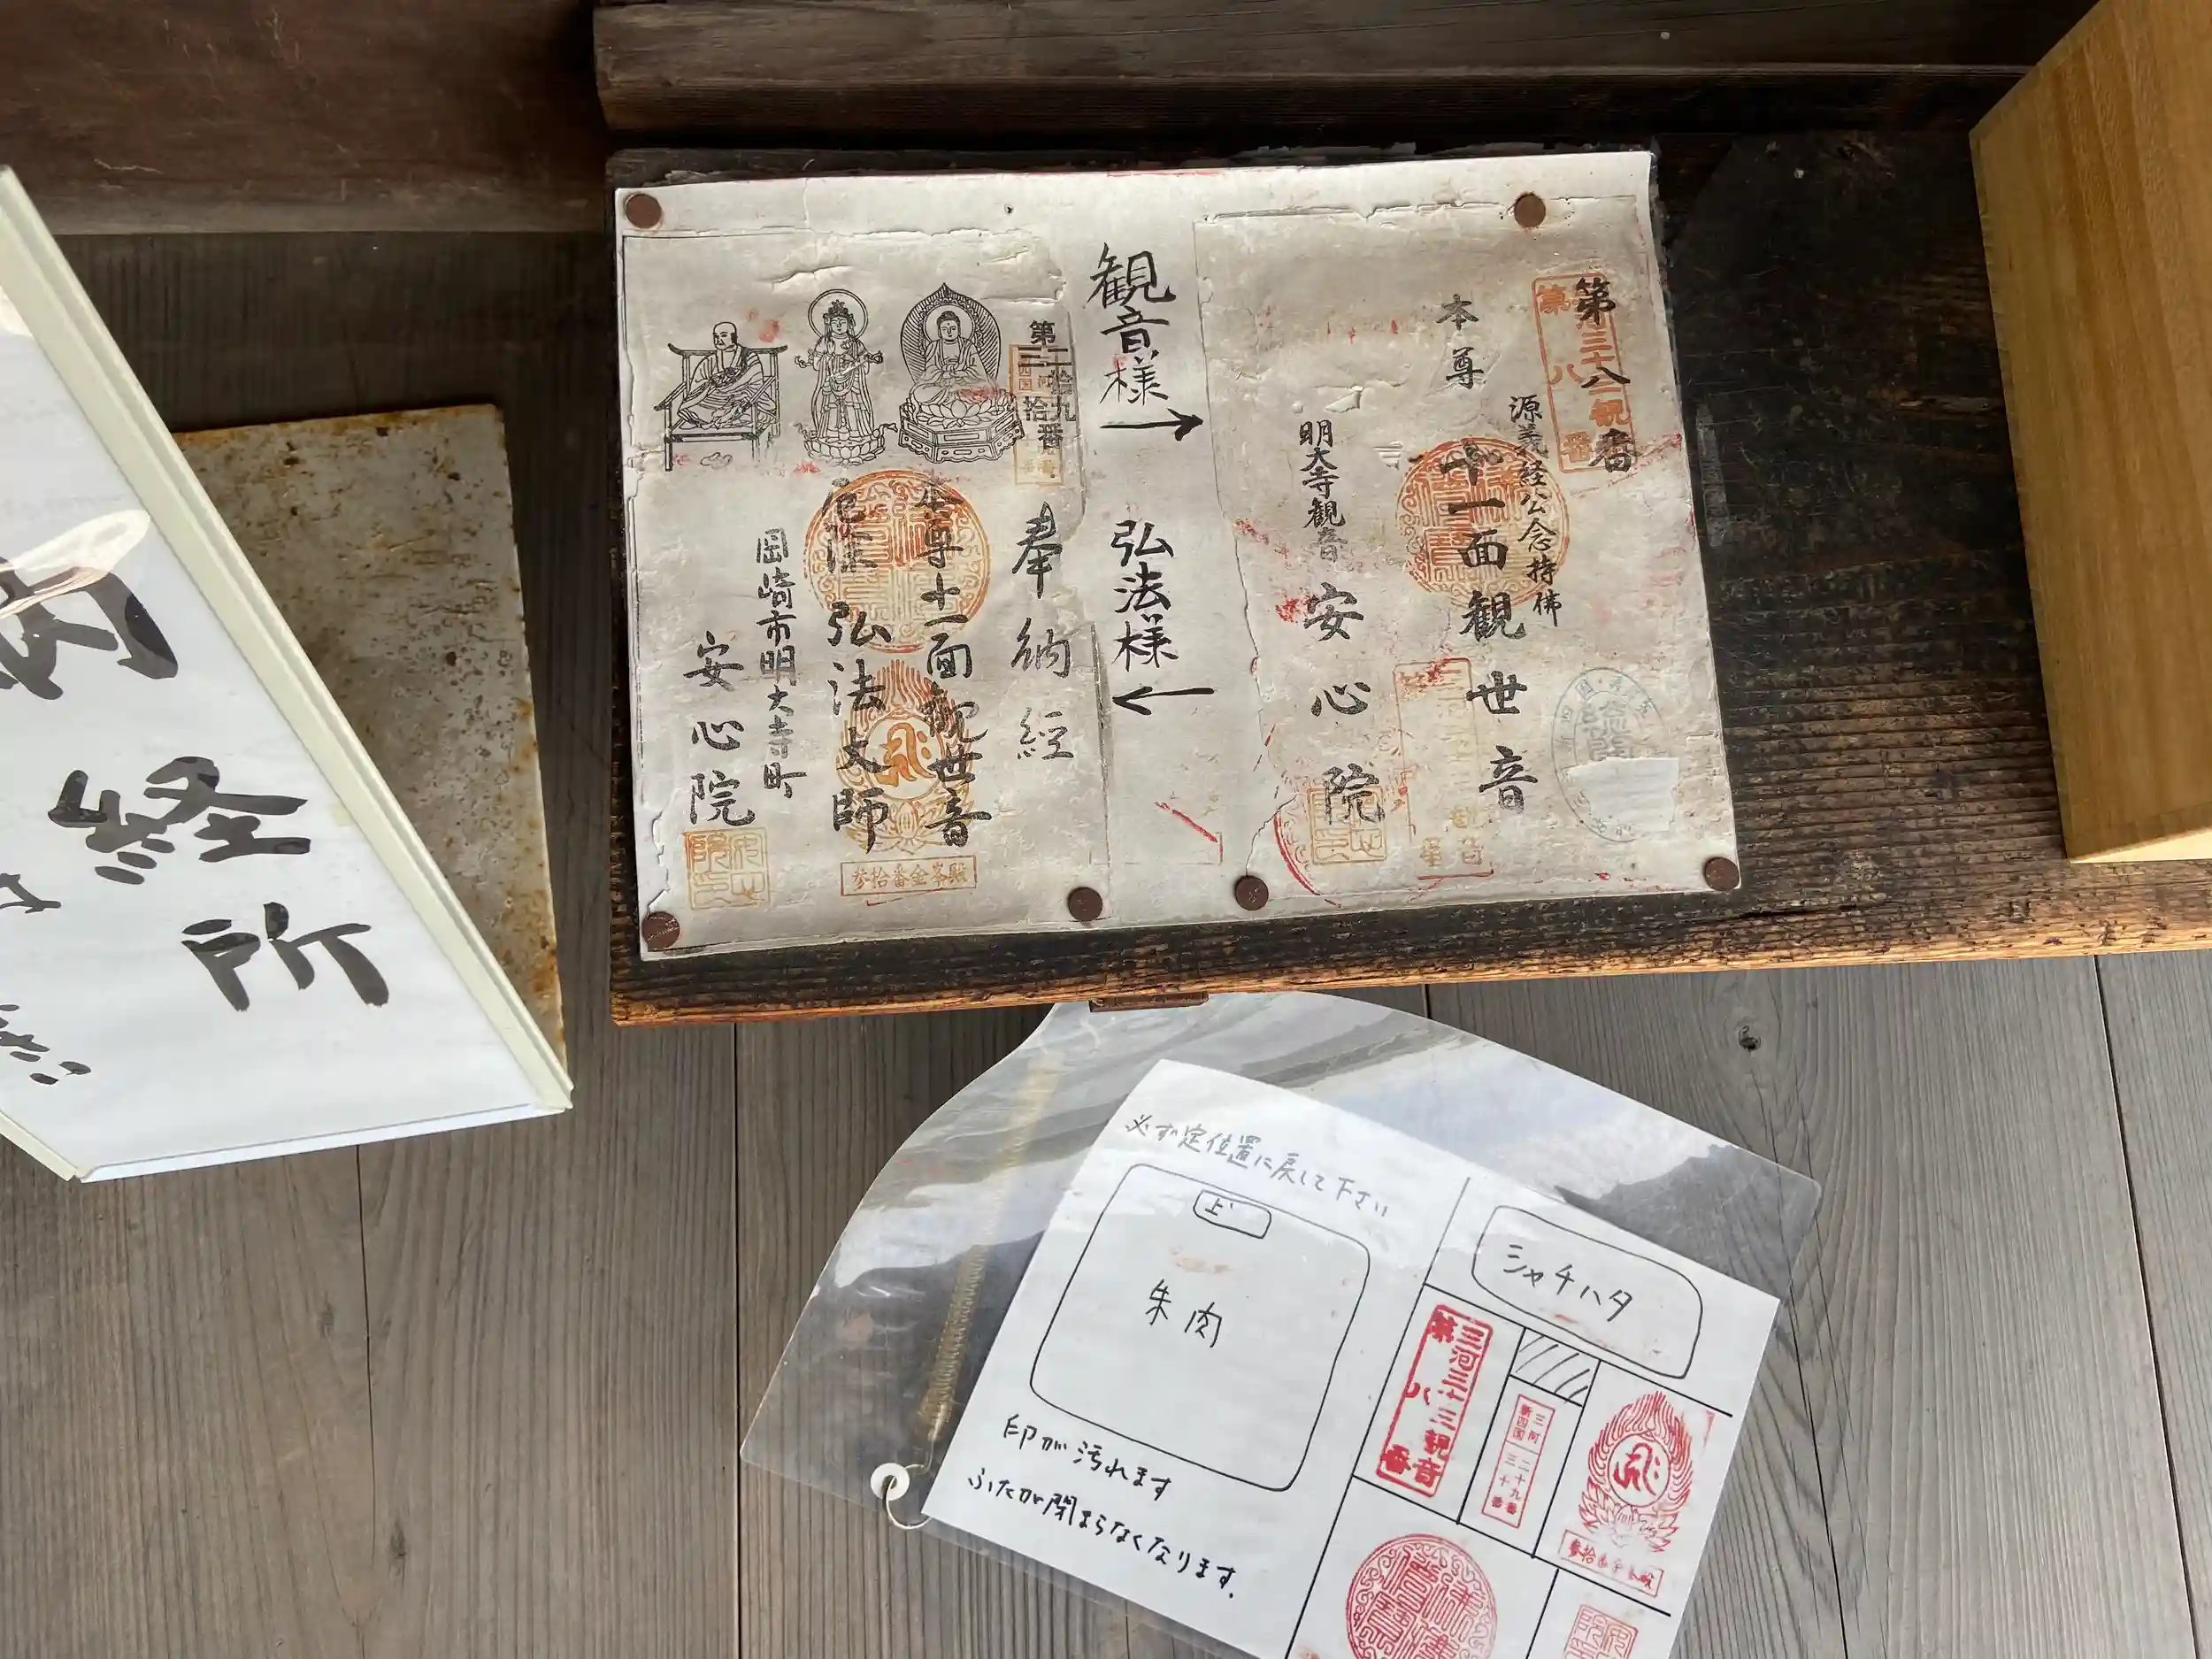 第八番
三十三観
第八番
源義経公念持佛
本尊
十一面観世音
明大寺観音
安心院
観音様
→
弘法様
←
第二拾九番
三拾
奉納經
本尊十一面観世音
厄除弘法大師
岡崎市明大寺町
安心院
参拾番金峯殿
経所
必ず定位置に戻して下さい
上
朱肉
印が汚れます
ふたが閉まらなくなります。
シャチハタ
三河三十三観音
第八番
三河
新四国
二十九番
三十番